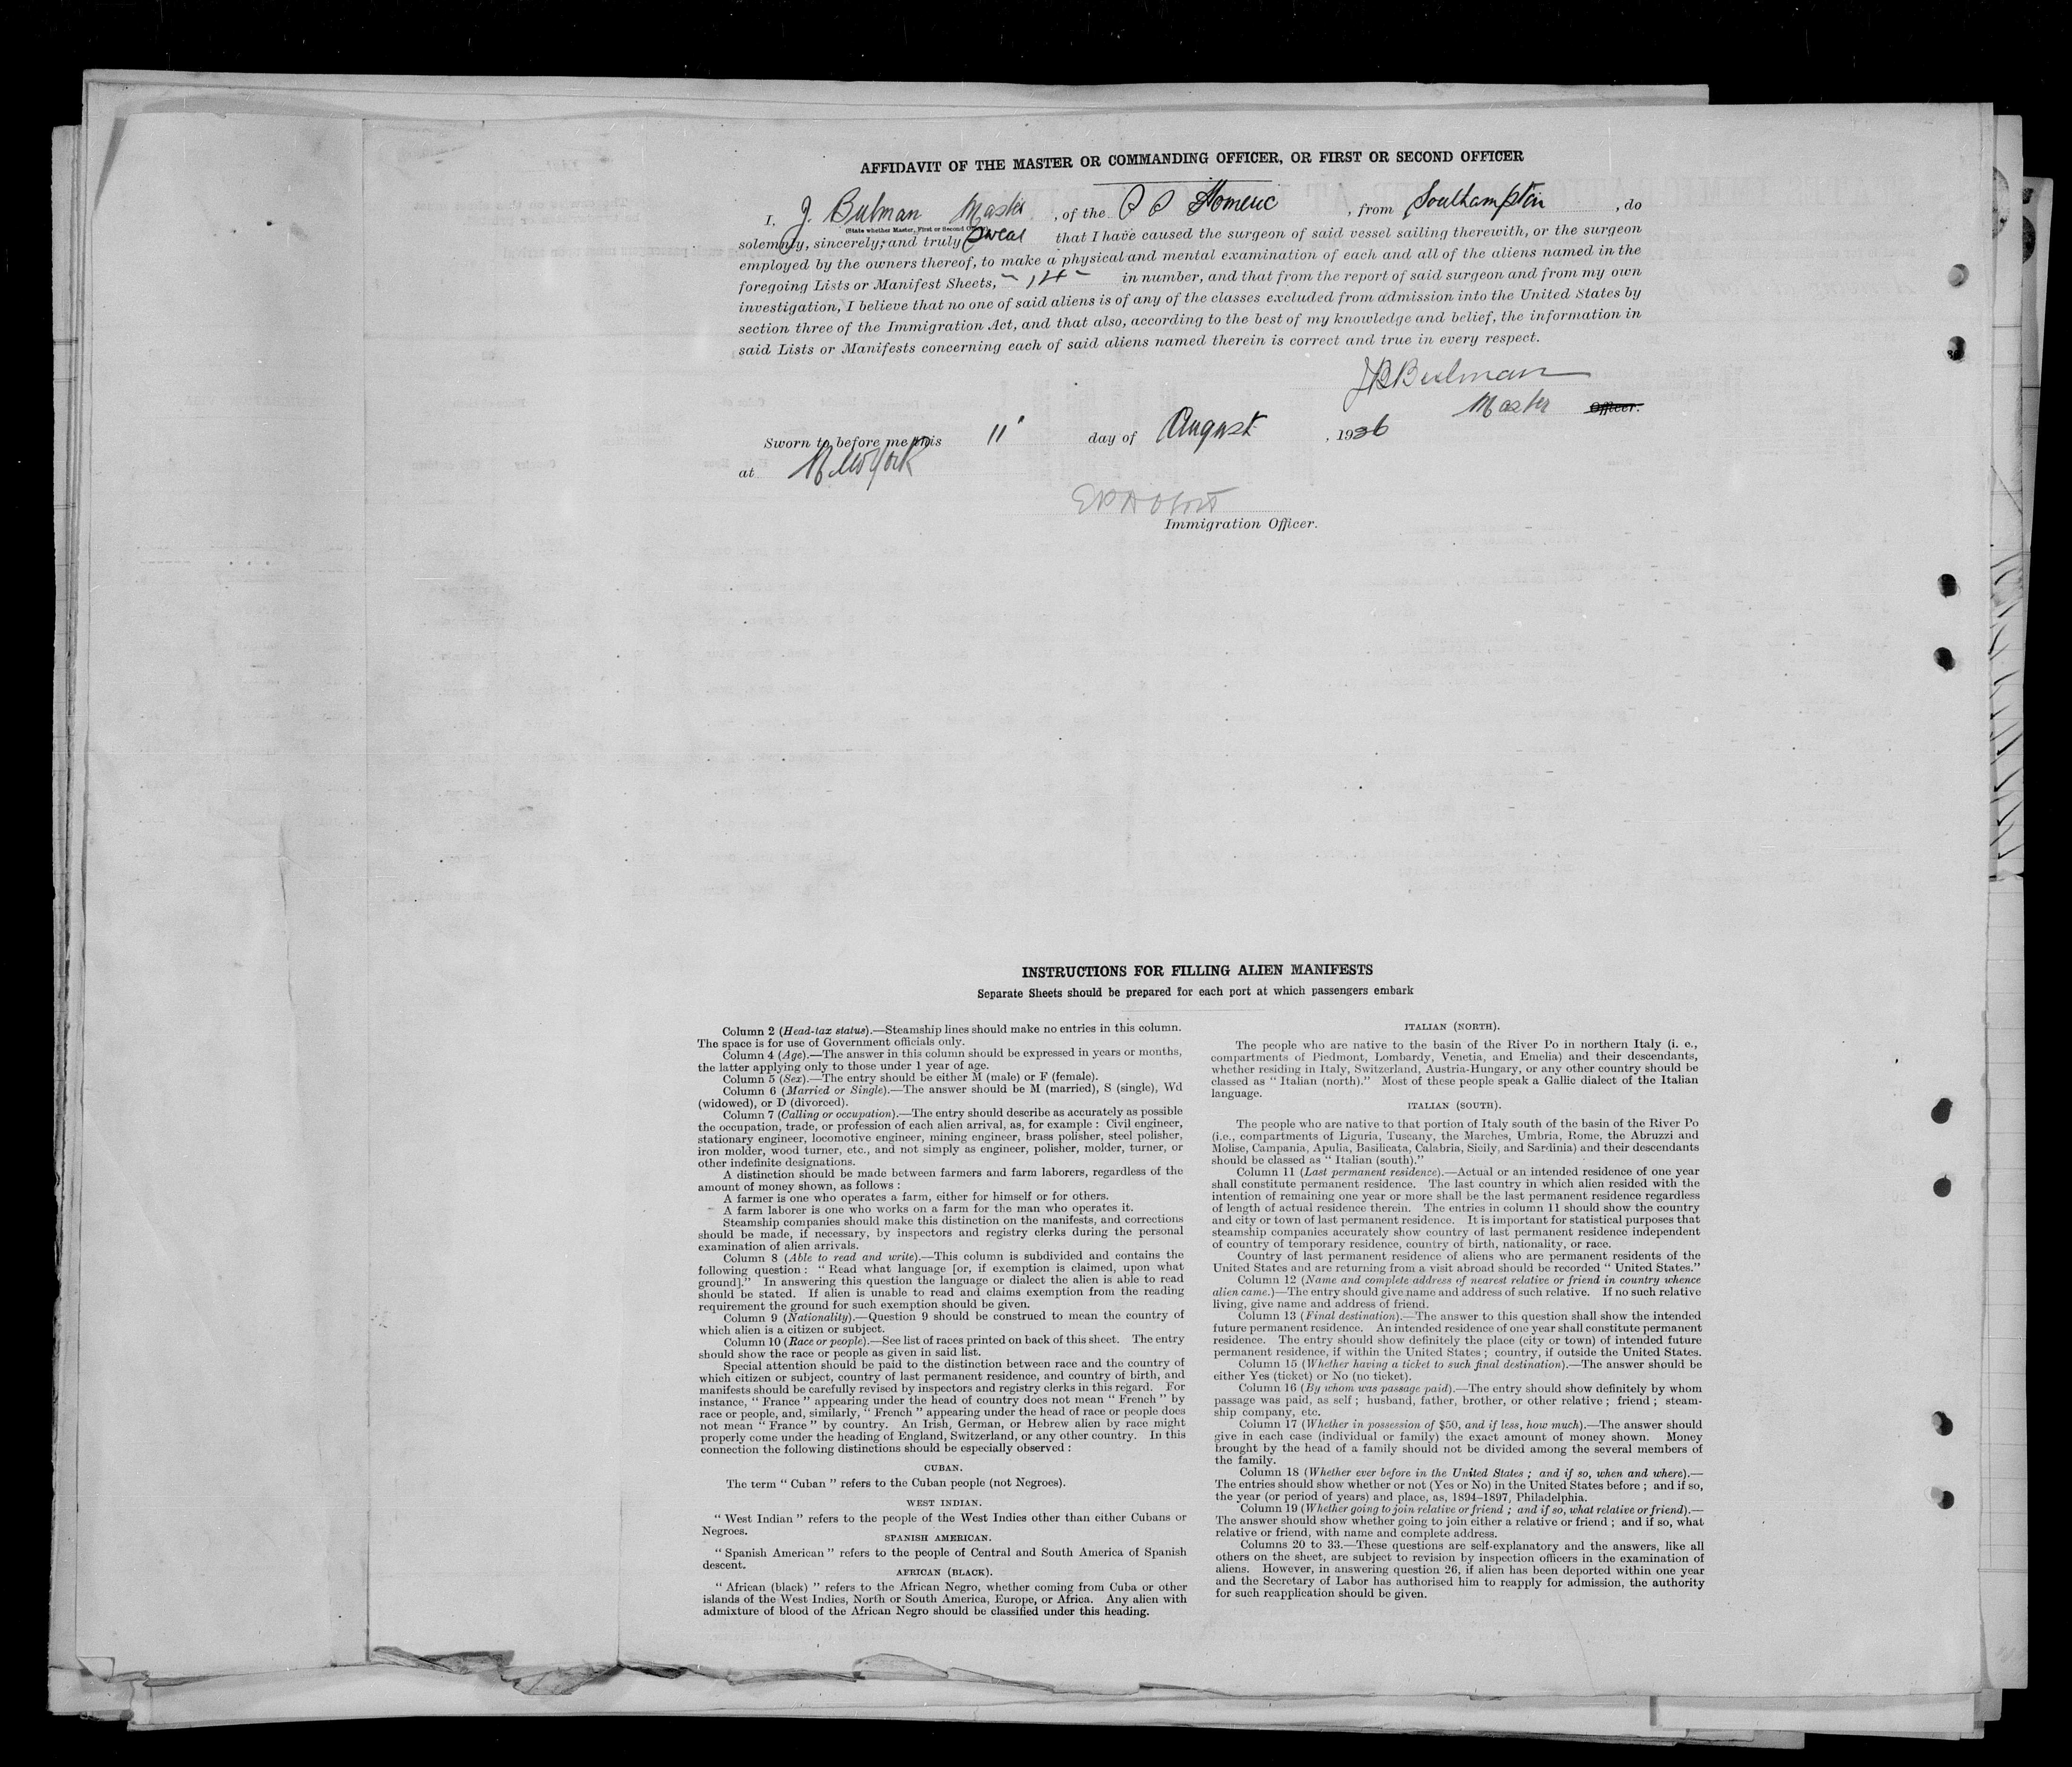 AFFIDAVIT OF THE MASTER OR COMMANDING OFFICER, OR FIRST OR SECOND OFFICER
I, J. Bulman Master, of the S S Homeric, from Southampton, do
(State whether Master, First or Second Officer)
solemnly, sincerely, and truly swear that I have caused the surgeon of said vessel sailing therewith, or the surgeon
employed by the owners thereof, to make a physical and mental examination of each and all of the aliens named in the
foregoing Lists or Manifest Sheets, - 14 - in number, and that from the report of said surgeon and from my own
investigation, I believe that no one of said aliens is of any of the classes excluded from admission into the United States by
section three of the Immigration Act, and that also, according to the best of my knowledge and belief, the information in
said Lists or Manifests concerning each of said aliens named therein is correct and true in every respect.
JB Bulman
Master Officer.
Sworn to before me this 11 day of August, 1926
at New York
Immigration Officer.
INSTRUCTIONS FOR FILLING ALIEN MANIFESTS
Separate Sheets should be prepared for each port at which passengers embark
Column 2 (Head-tax status).—Steamship lines should make no entries in this column.
The space is for use of Government officials only.
Column 4 (Age).—The answer in this column should be expressed in years or months,
the latter applying only to those under 1 year of age.
Column 5 (Sex).—The entry should be either M (male) or F (female).
Column 6 (Married or Single).—The answer should be M (married), S (single), Wd
(widowed), or D (divorced).
Column 7 (Calling or occupation).—The entry should describe as accurately as possible
the occupation, trade, or profession of each alien arrival, as, for example : Civil engineer,
stationary engineer, locomotive engineer, mining engineer, brass polisher, steel polisher,
iron molder, wood turner, etc., and not simply as engineer, polisher, molder, turner, or
other indefinite designations.
A distinction should be made between farmers and farm laborers, regardless of the
amount of money shown, as follows :
A farmer is one who operates a farm, either for himself or for others.
A farm laborer is one who works on a farm for the man who operates it.
Steamship companies should make this distinction on the manifests, and corrections
should be made, if necessary, by inspectors and registry clerks during the personal
examination of alien arrivals.
Column 8 (Able to read and write).—This column is subdivided and contains the
following question : " Read what language [or, if exemption is claimed, upon what
ground]." In answering this question the language or dialect the alien is able to read
should be stated. If alien is unable to read and claims exemption from the reading
requirement the ground for such exemption should be given.
Column 9 (Nationality).—Question 9 should be construed to mean the country of
which alien is a citizen or subject.
Column 10 (Race or people).—See list of races printed on back of this sheet. The entry
should show the race or people as given in said list.
Special attention should be paid to the distinction between race and the country of
which citizen or subject, country of last permanent residence, and country of birth, and
manifests should be carefully revised by inspectors and registry clerks in this regard. For
instance, " France " appearing under the head of country does not mean " French " by
race or people, and, similarly, " French " appearing under the head of race or people does
not mean " France " by country. An Irish, German, or Hebrew alien by race might
properly come under the heading of England, Switzerland, or any other country. In this
connection the following distinctions should be especially observed :
CUBAN.
The term " Cuban " refers to the Cuban people (not Negroes).
WEST INDIAN.
" West Indian " refers to the people of the West Indies other than either Cubans or
Negroes.
SPANISH AMERICAN.
" Spanish American " refers to the people of Central and South America of Spanish
descent.
AFRICAN (BLACK).
" African (black) " refers to the African Negro, whether coming from Cuba or other
islands of the West Indies, North or South America, Europe, or Africa. Any alien with
admixture of blood of the African Negro should be classified under this heading.
ITALIAN (NORTH).
The people who are native to the basin of the River Po in northern Italy (i. e.,
compartments of Piedmont, Lombardy, Venetia, and Emelia) and their descendants,
whether residing in Italy, Switzerland, Austria-Hungary, or any other country should be
classed as " Italian (north)." Most of these people speak a Gallic dialect of the Italian
language.
ITALIAN (SOUTH).
The people who are native to that portion of Italy south of the basin of the River Po
(i.e., compartments of Liguria, Tuscany, the Marches, Umbria, Rome, the Abruzzi and
Molise, Campania, Apulia, Basilicata, Calabria, Sicily, and Sardinia) and their descendants
should be classed as " Italian (south)."
Column 11 (Last permanent residence).—Actual or an intended residence of one year
shall constitute permanent residence. The last country in which alien resided with the
intention of remaining one year or more shall be the last permanent residence regardless
of length of actual residence therein. The entries in column 11 should show the country
and city or town of last permanent residence. It is important for statistical purposes that
steamship companies accurately show country of last permanent residence independent
of country of temporary residence, country of birth, nationality, or race.
Country of last permanent residence of aliens who are permanent residents of the
United States and are returning from a visit abroad should be recorded " United States."
Column 12 (Name and complete address of nearest relative or friend in country whence
alien came.)—The entry should give name and address of such relative. If no such relative
living, give name and address of friend.
Column 13 (Final destination).—The answer to this question shall show the intended
future permanent residence. An intended residence of one year shall constitute permanent
residence. The entry should show definitely the place (city or town) of intended future
permanent residence, if within the United States ; country, if outside the United States.
Column 15 (Whether having a ticket to such final destination).—The answer should be
either Yes (ticket) or No (no ticket).
Column 16 (By whom was passage paid).—The entry should show definitely by whom
passage was paid, as self ; husband, father, brother, or other relative ; friend ; steam-
ship company, etc.
Column 17 (Whether in possession of $50, and if less, how much).—The answer should
give in each case (individual or family) the exact amount of money shown. Money
brought by the head of a family should not be divided among the several members of
the family.
Column 18 (Whether ever before in the United States ; and if so, when and where).—
The entries should show whether or not (Yes or No) in the United States before ; and if so,
the year (or period of years) and place, as, 1894–1897, Philadelphia.
Column 19 (Whether going to join relative or friend ; and if so, what relative or friend).—
The answer should show whether going to join either a relative or friend ; and if so, what
relative or friend, with name and complete address.
Columns 20 to 33.—These questions are self-explanatory and the answers, like all
others on the sheet, are subject to revision by inspection officers in the examination of
aliens. However, in answering question 26, if alien has been deported within one year
and the Secretary of Labor has authorised him to reapply for admission, the authority
for such reapplication should be given.